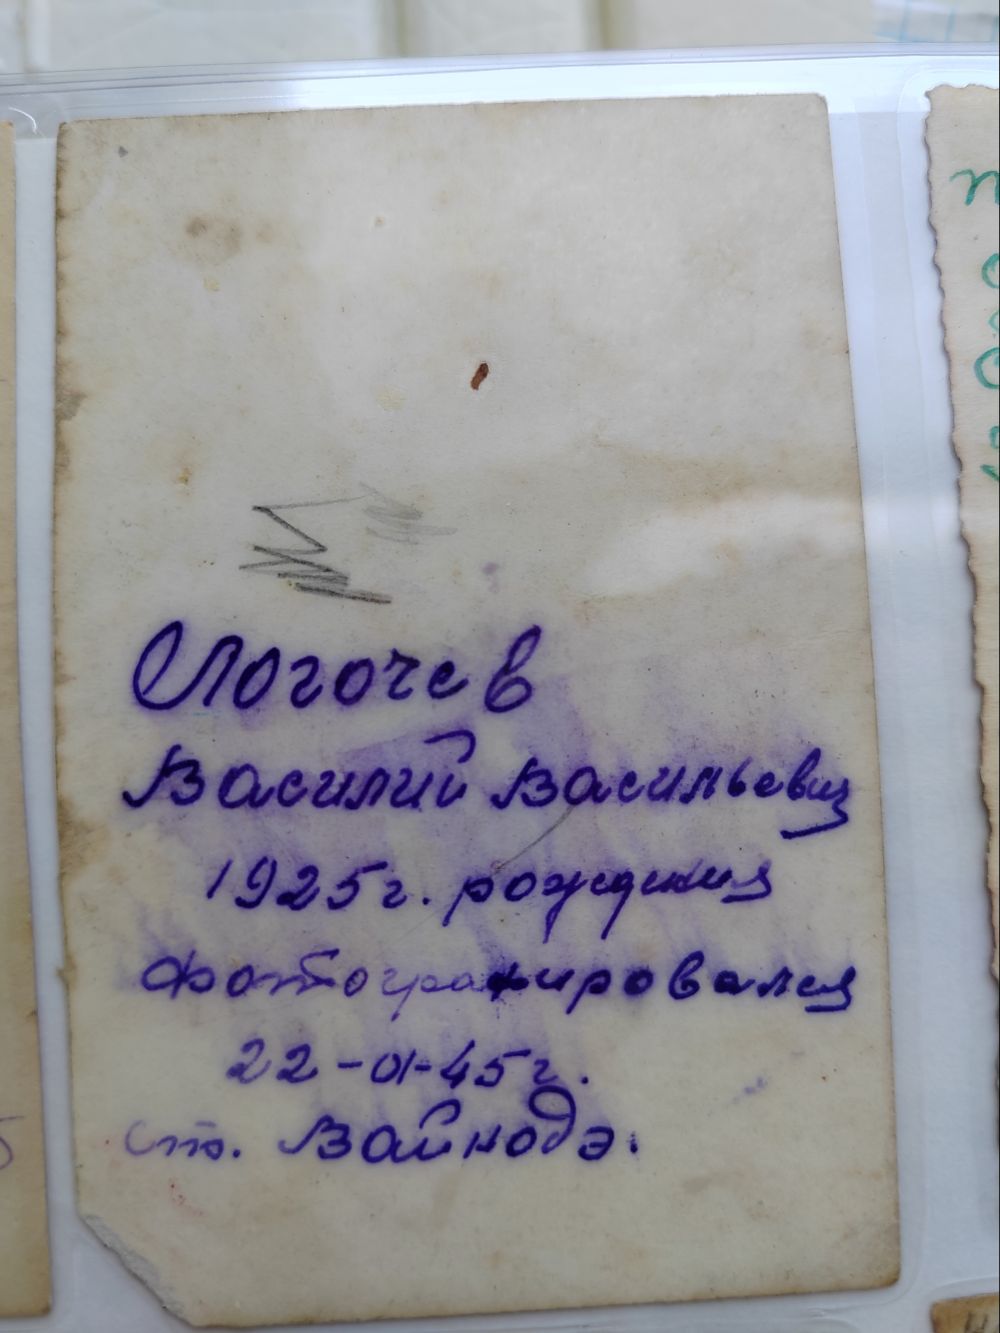 Логочев
Василий Васильевич
1925г. рождения
фотографировался
22-01-45г.
ст. Вайнодэ.